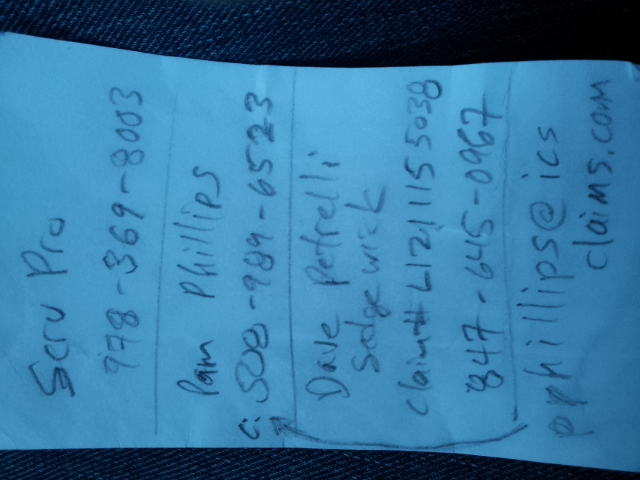 Serv Pro
978-369-8003
Pam Phillips
c: 508-989-6523
Dave Petrelli
Sedgewick
claim# L1211155038
847-645-0967
pphillips@ics
claims.com